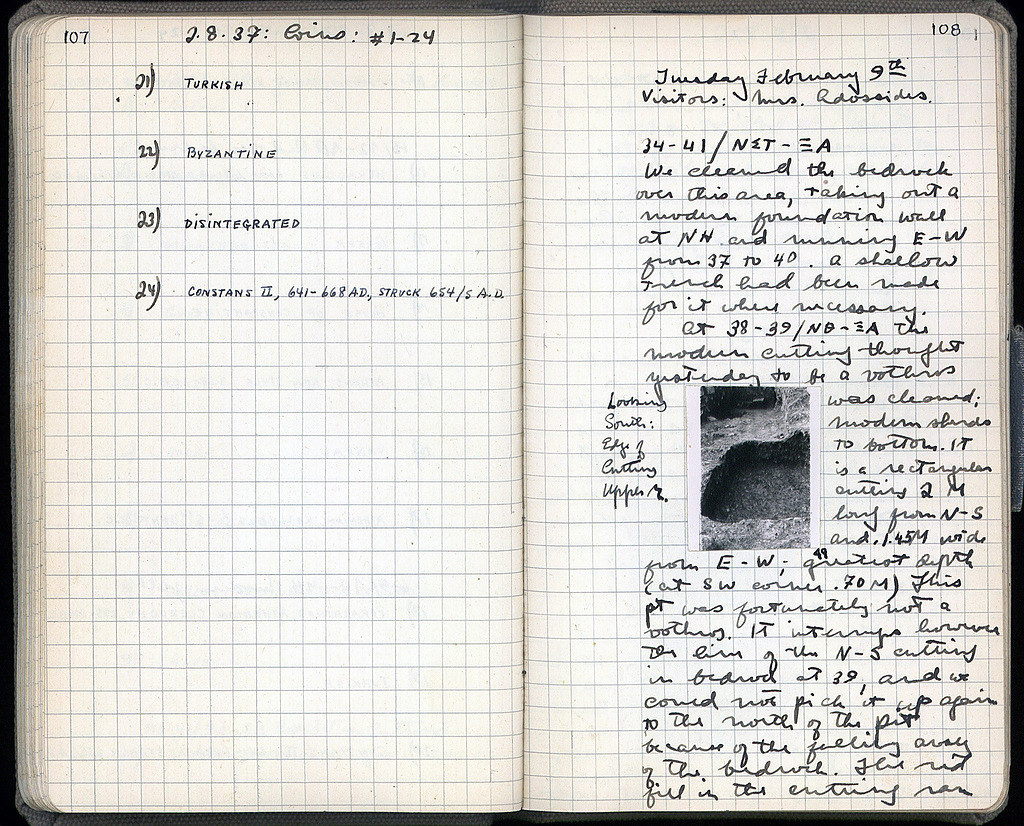 107
2.8.37: Coins: #1-24
21) TURKISH
22) BYZANTINE
23) DISINTEGRATED
24) CONSTANS II, 641-668 A.D., STRUCK 654/5 A.D.
108
Tuesday February 9th
Visitors: Mrs. Adossides.
34-41/ΝΣΤ-ΞΑ
We cleaned the bedrock
over this area, taking out a
modern foundation wall
at NH and running E-W
from 37 to 40. A shallow
trench had been made
for it where necessary.
At 38-39/ΝΘ-ΞΑ the
modern cutting thought
yesterday to be a bothros
was cleaned;
modern sherds
to bottom. It
is a rectangular
cutting 2 M
long from N-S
and 1.45M wide
Looking
South:
Edge of
Cutting
Upper r.
49
from E-W; greatest depth
(at SW corner .70 M) This
pt was fortunately not a
bothros. It interrups however
the line of the N-S cutting
in bedrock at 39, and we
could not pick it up again
to the north of the pit
because of the falling away
of the bedrock. The red
fill in the cutting ran